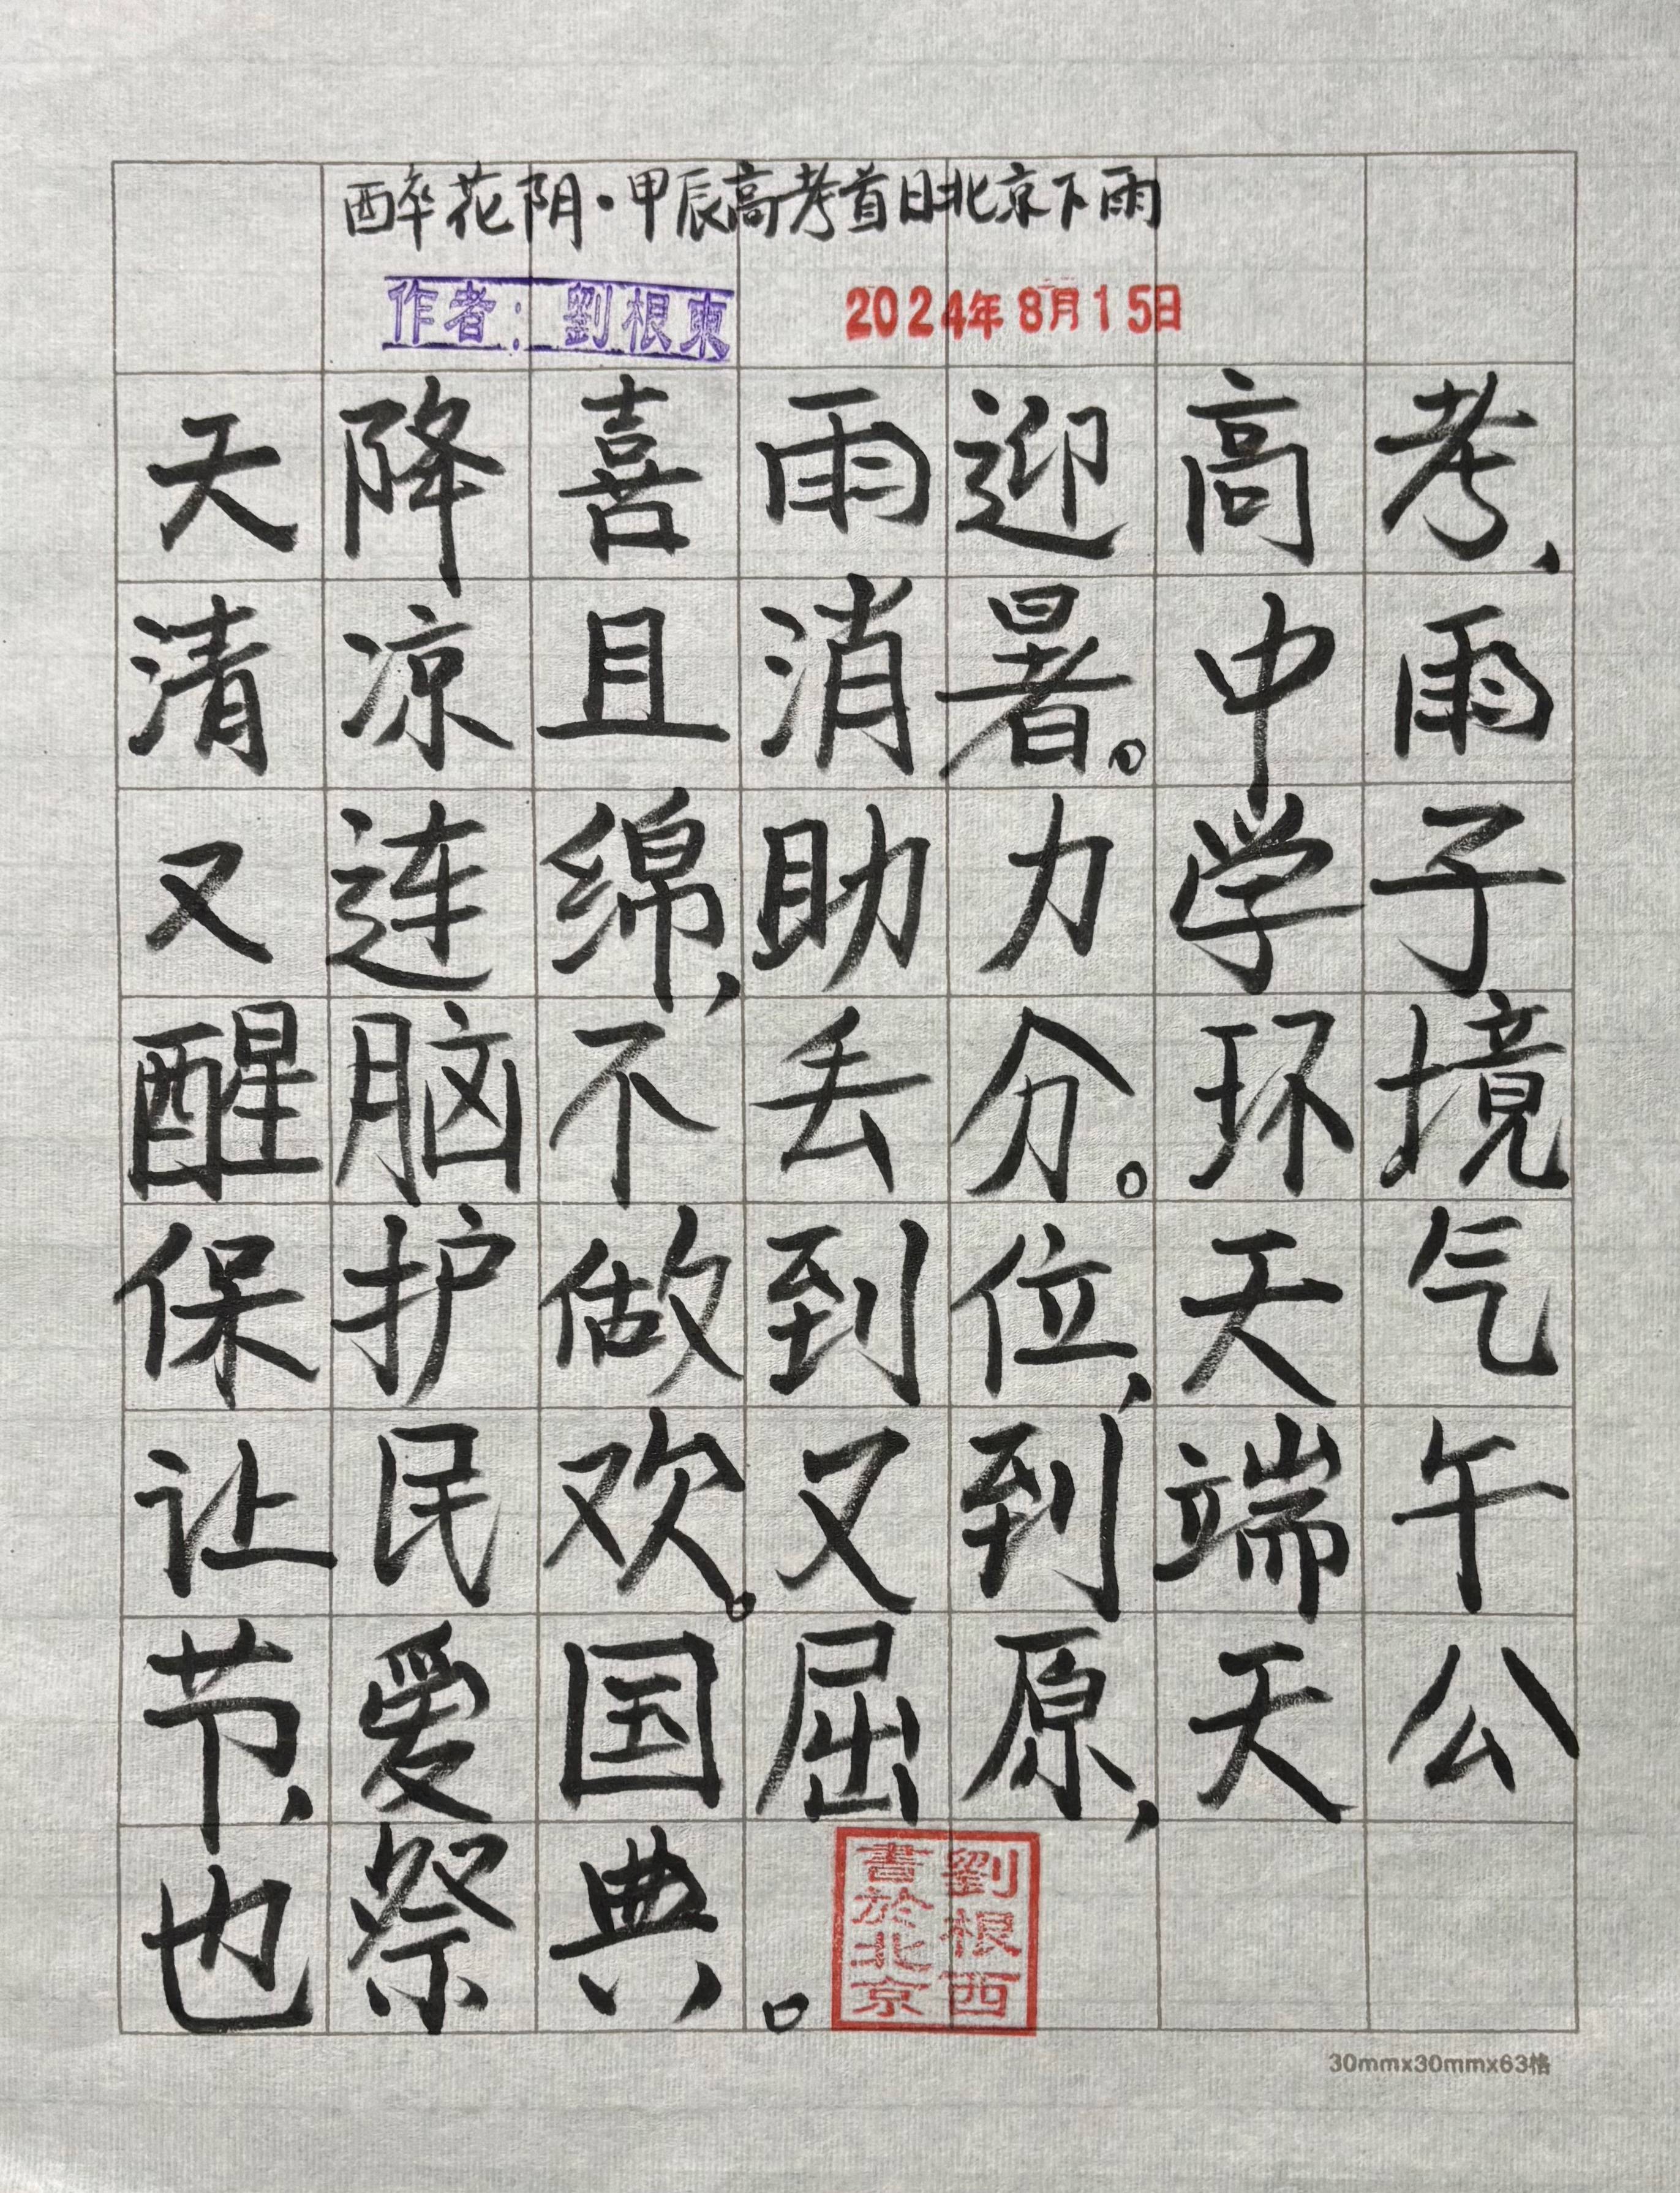 醉花阴·甲辰高考首日北京下雨
作者：劉根東 2024年8月15日
天降喜雨迎高考，
清凉且消暑。中雨
又连绵，助力学子
醒脑不丢分。环境
保护做到位，天气
让民欢。又到端午
节，爱国屈原，天公
也祭典。
劉根西
書於北京
30mmx30mmx63格